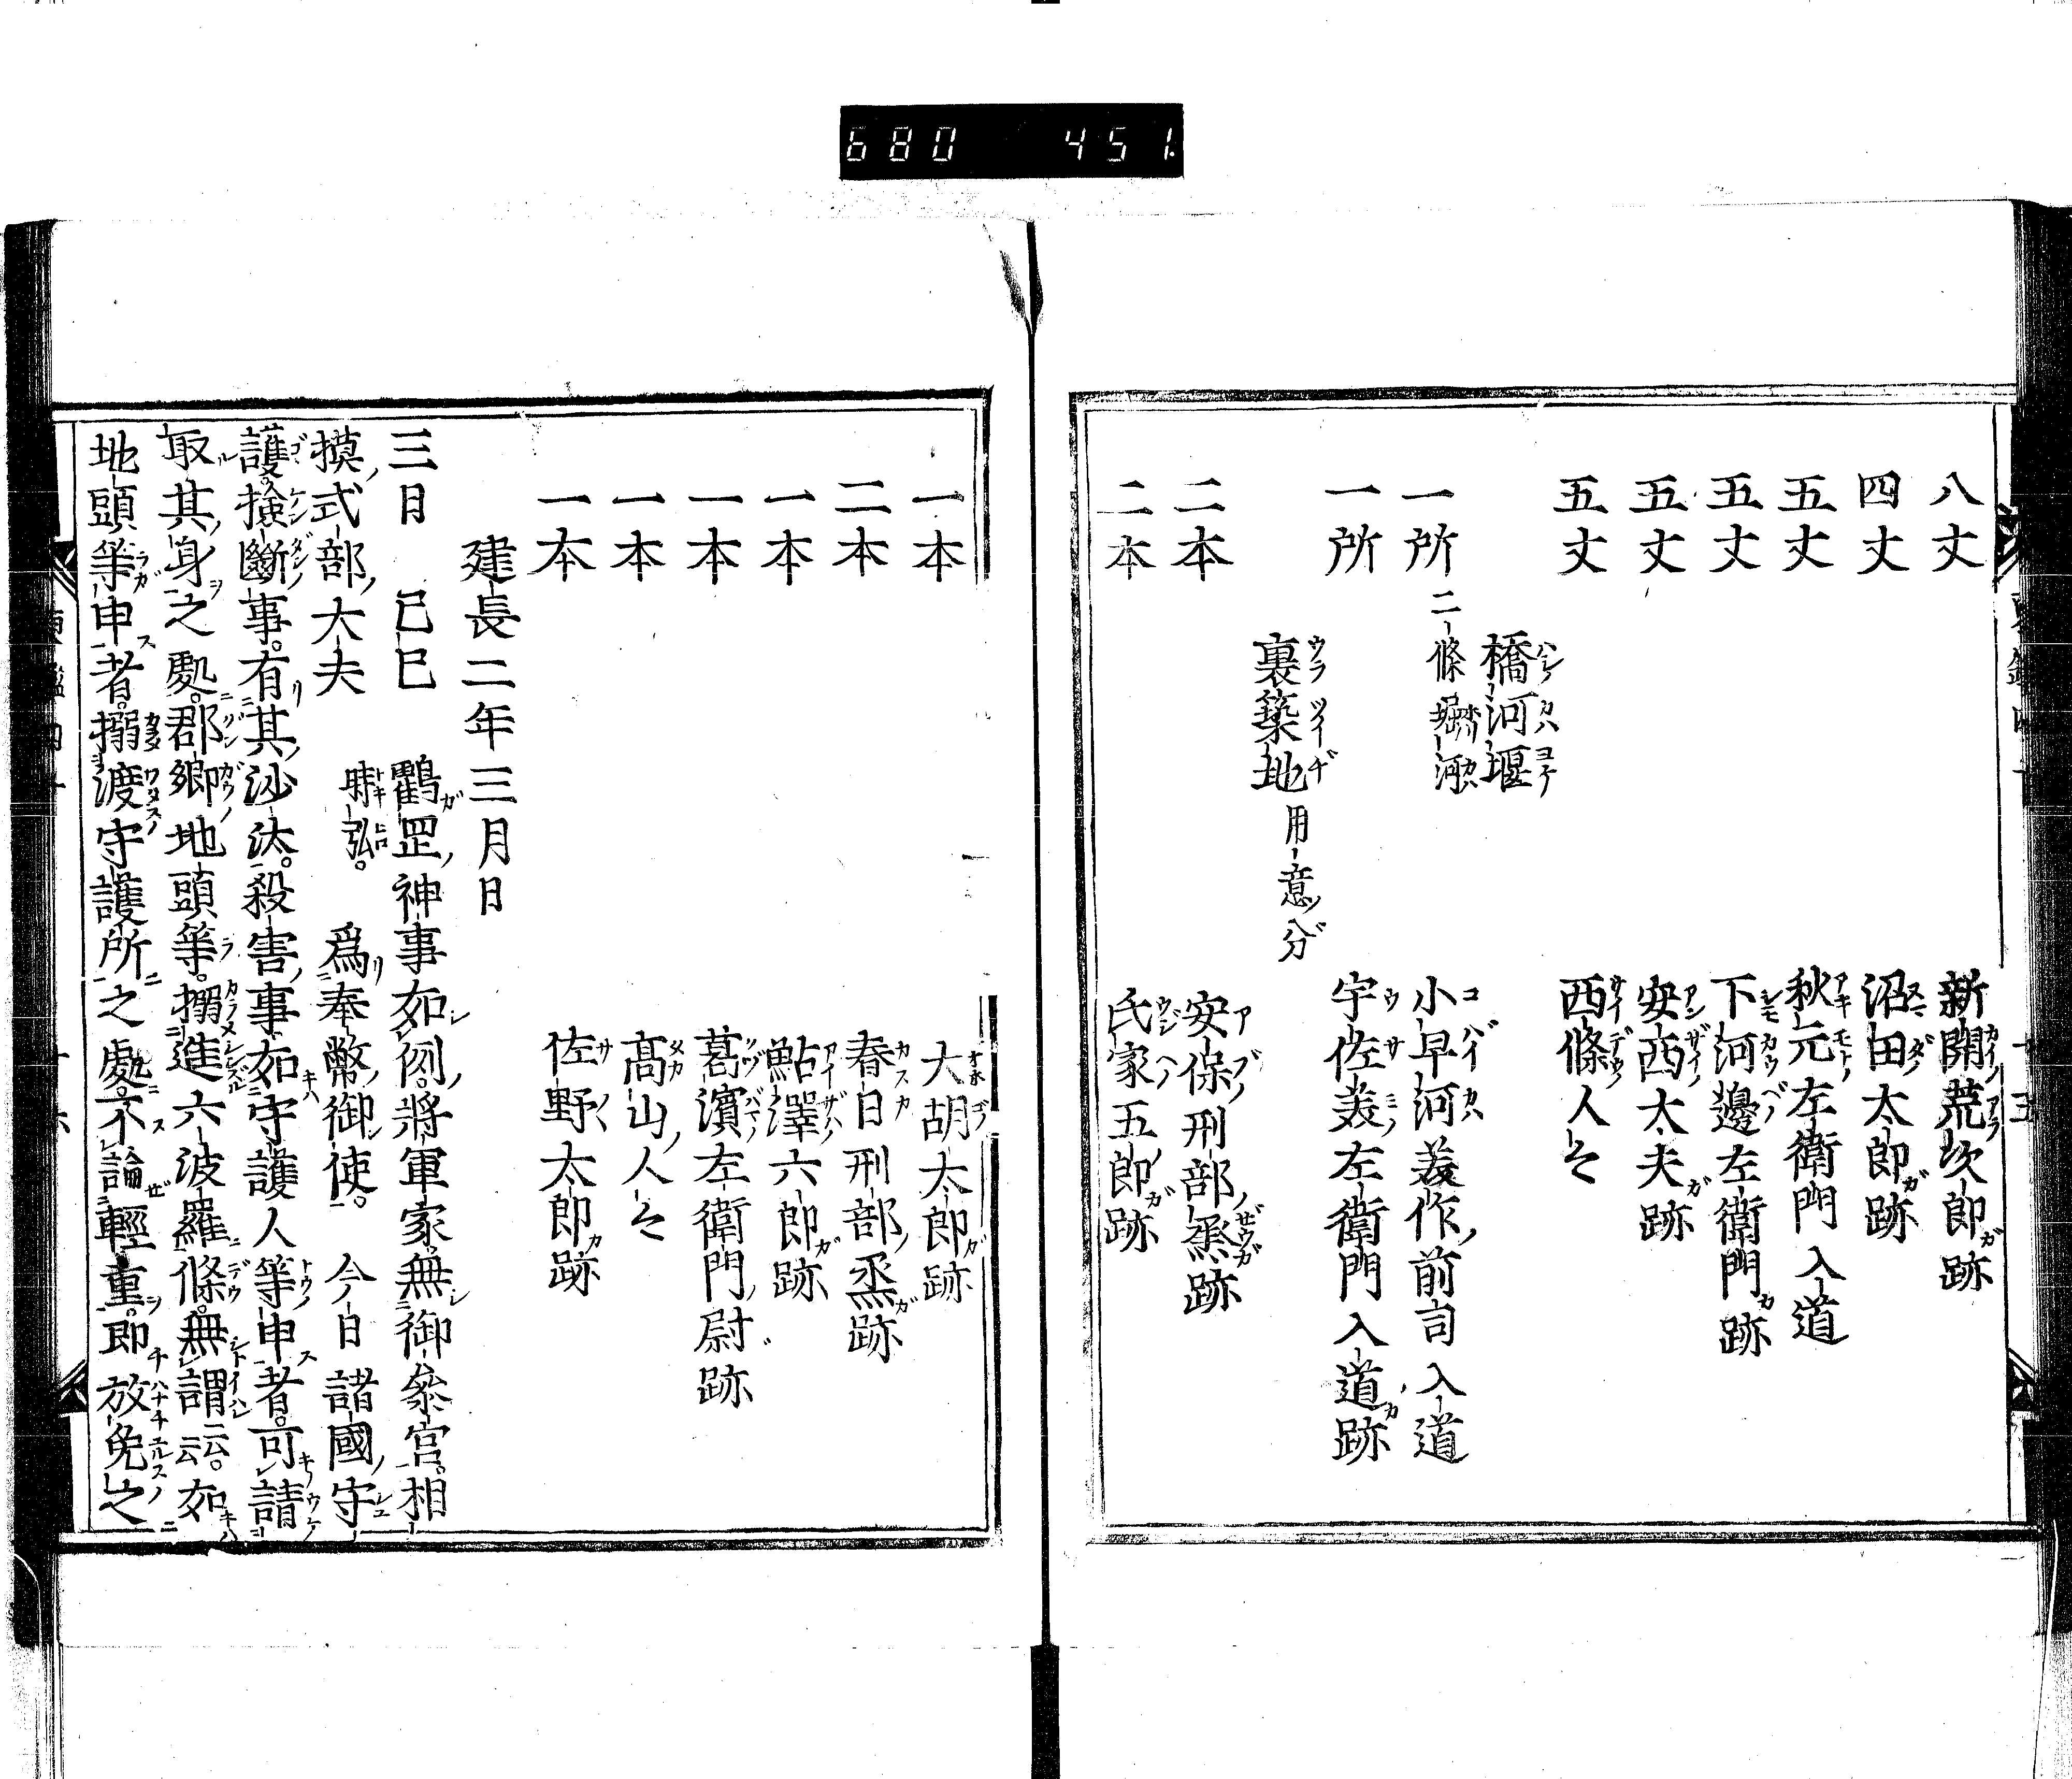 680 451
八丈 新開荒次郎跡
四丈 沼田太郎跡
五丈 秋元左衛門入道
五丈 下河邊左衛門跡
五丈 安西大夫跡
五丈 西條人々
橋河堰
一所 二條堀河 小早河美作前司入道
一所 宇佐美左衛門入道跡
裏築地 用意分
二本 安保刑部烝跡
二本 氏家五郎跡
一本 大胡太郎跡
二本 春日刑部烝跡
一本 鮎澤六郎跡
一本 葛濱左衛門尉跡
一本 髙山人々
一本 佐野太郎跡
建長二年三月日
三月 己巳 鸖罡神事如例。將軍家無御參宮。相
摸式部大夫 時弘。 爲奉幣御使。 今日諸國守
護。撿斷事。有其沙汰。殺害事如守護人等申者。可請
取其身之處。郡鄉地頭等。搦進六波羅條。無謂云云。如
地頭等申者。搦渡守護所之處。不論輕重。即放免之